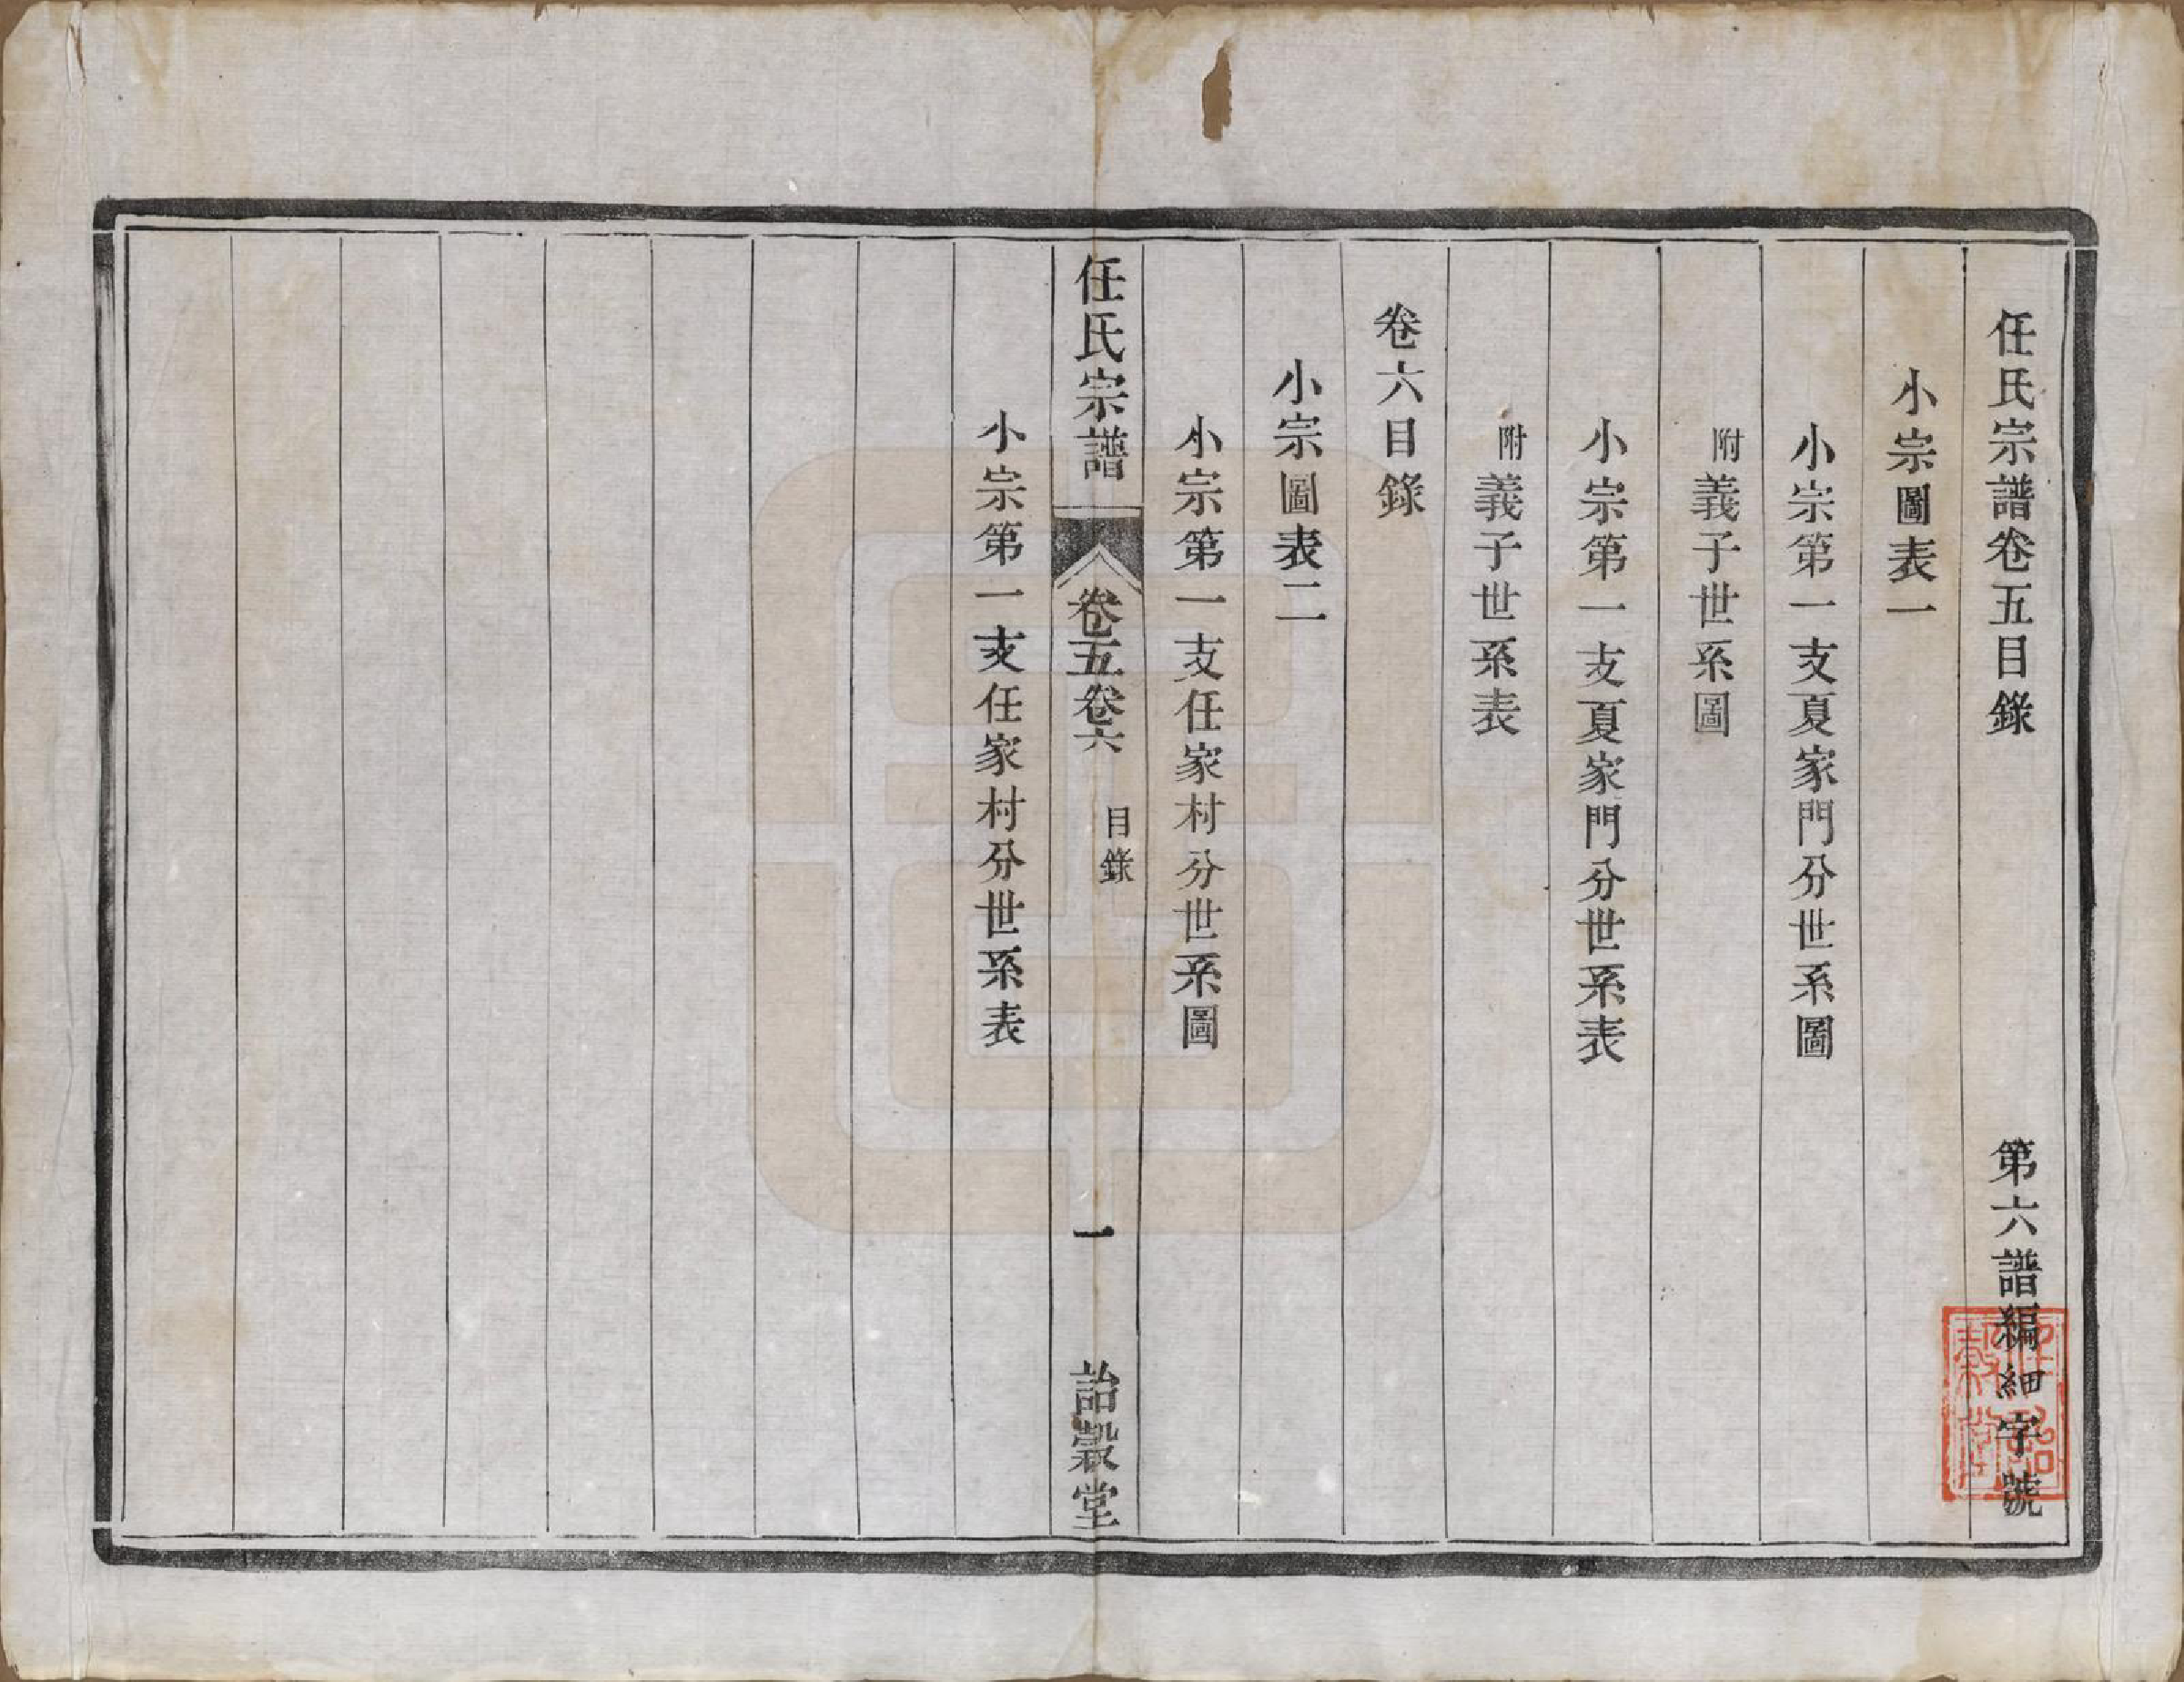 任氏宗譜卷五目錄　第六譜編細字號
小宗圖表一
小宗第一支夏家門分世系圖
附義子世系圖
小宗第一支夏家門分世系表
附義子世系表
卷六目錄
小宗圖表二
小宗第一支任家村分世系圖
任氏宗譜　卷五卷六　目錄　一　詒穀堂
小宗第一支任家村分世系表